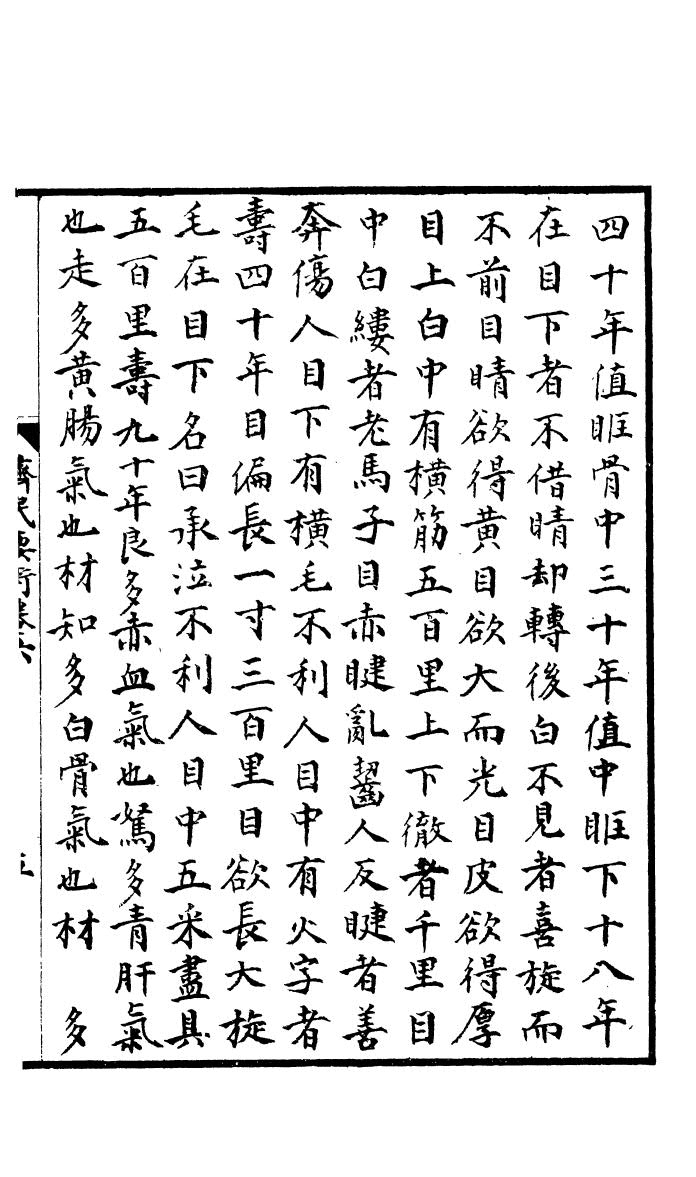 四十年值眶骨中三十年值中眶下十八年
在目下者不借睛却轉後白不見者喜旋而
不前目睛欲得黄目欲大而光目皮欲得厚
目上白中有橫筋五百里上下徹者千里目
中白縷者老馬子目赤睫亂齧人反睫者善
奔傷人目下有橫毛不利人目中有火字者
壽四十年目偏長一寸三百里目欲長大旋
毛在目下名曰承泣不利人目中五采盡具
五百里壽九十年良多赤血氣也駑多青肝氣
也走多黄腸氣也材知多白骨氣也材 多
齊民要術卷六
五